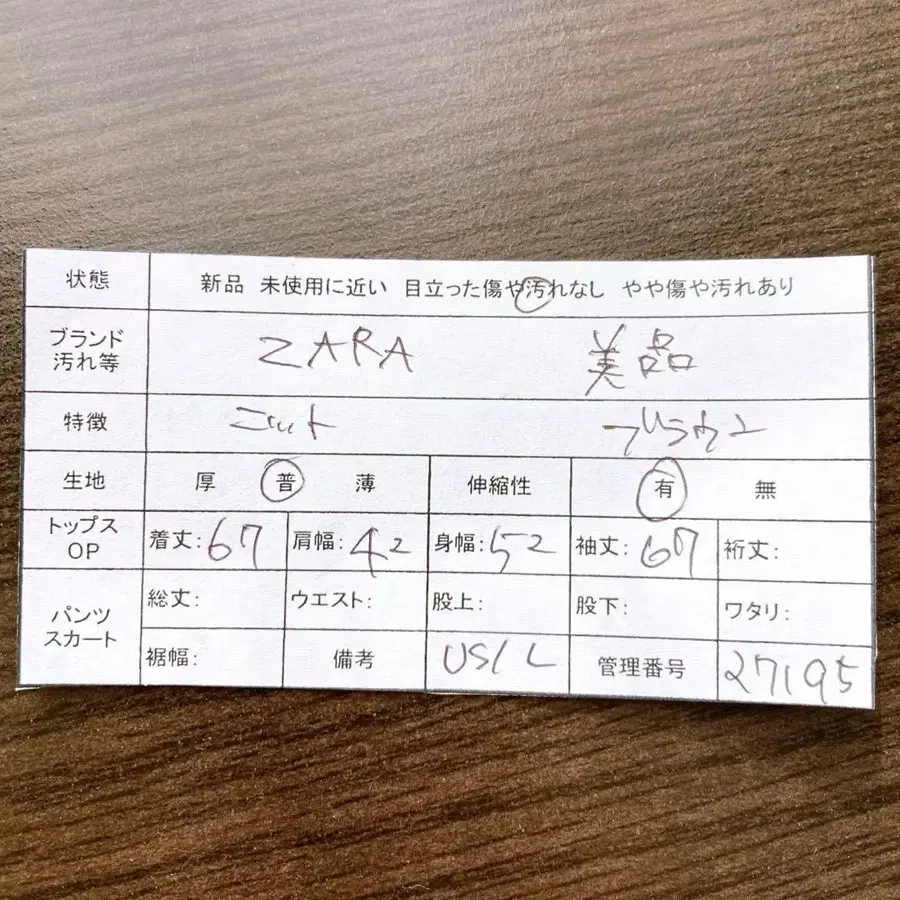 状態 新品 未使用に近い 目立った傷や汚れなし やや傷や汚れあり
ブランド
汚れ等 ZARA 美品
特徴 ニット ブラウン
生地 厚 普 薄 伸縮性 有 無
トップス
OP 着丈:67 肩幅:42 身幅:52 袖丈:67 裄丈:
パンツ
スカート 総丈: ウエスト: 股上: 股下: ワタリ:
裾幅: 備考 US/L 管理番号 27195